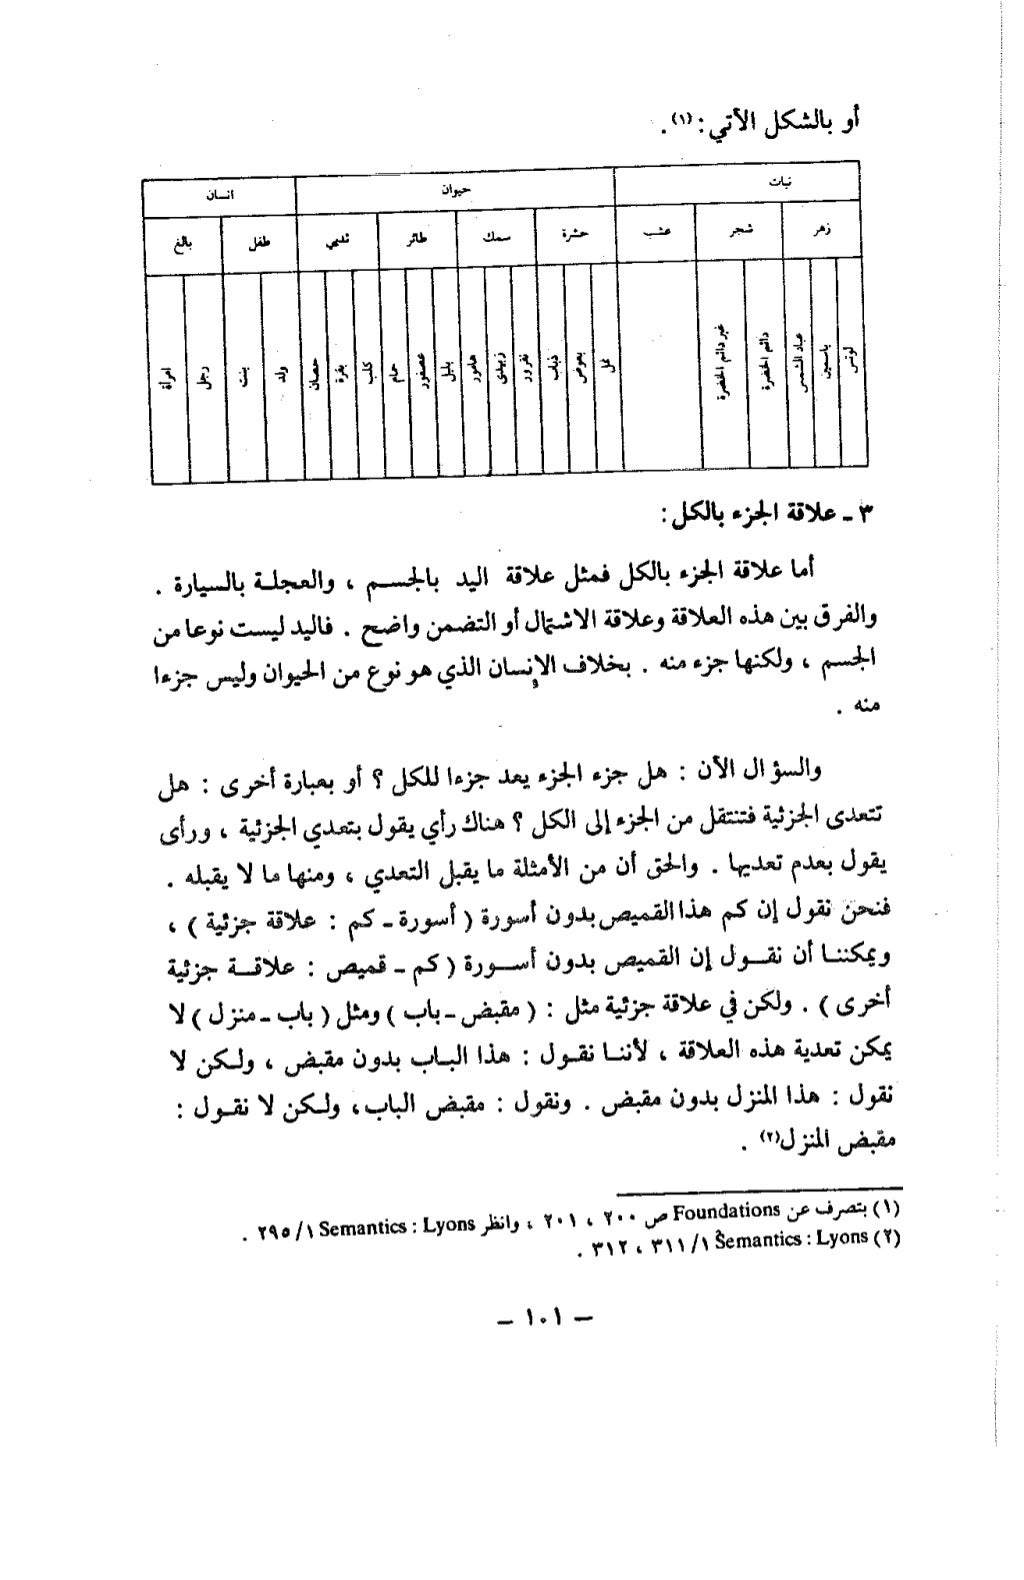 أو بالشكل الآتي:(١).
نبات حيوان انسان
زهر شجر عشب حشرة سمك طائر ثديي طفل بالغ
لوتس ياسمين عباد الشمس دائم الخضرة غير دائم الخضرة نمل بعوض ذباب زبيدى هامور بلبل عصفور حمام كلب بقرة حصان ولد بنت رجل امرأة
٣ ـ علاقة الجزء بالكل:
أما علاقة الجزء بالكل فمثل علاقة اليد بالجسم ، والعجلة بالسيارة .
والفرق بين هذه العلاقة وعلاقة الاشتمال أو التضمن واضح . فاليد ليست نوعا من
الجسم ، ولكنها جزء منه . بخلاف الإنسان الذي هو نوع من الحيوان وليس جزءا
منه .
والسؤال الآن : هل جزء الجزء يعد جزءا للكل ؟ أو بعبارة أخرى : هل
تتعدى الجزئية فتنتقل من الجزء إلى الكل ؟ هناك رأي يقول بتعدي الجزئية ، ورأى
يقول بعدم تعديها . والحق أن من الأمثلة ما يقبل التعدي ، ومنها ما لا يقبله .
فنحن نقول إن كم هذا القميص بدون أسورة ( أسورة ـ كم : علاقة جزئية ) ،
ويمكننا أن نقول إن القميص بدون أسورة ( كم ـ قميص : علاقة جزئية
أخرى ) . ولكن في علاقة جزئية مثل : ( مقبض ـ باب ) ومثل ( باب ـ منزل ) لا
يمكن تعدية هذه العلاقة ، لأننا نقول : هذا الباب بدون مقبض ، ولكن لا
نقول : هذا المنزل بدون مقبض . ونقول : مقبض الباب، ولكن لا نقول :
مقبض المنزل(٢) .
(١) بتصرف عن Foundations ص ٢٠٠ ، ٢٠١ ، وانظر Semantics : Lyons ١/ ٢٩٥ .
(٢) Semantics : Lyons ١/ ٣١١ ، ٣١٢ .
ـ ١٠١ ـ